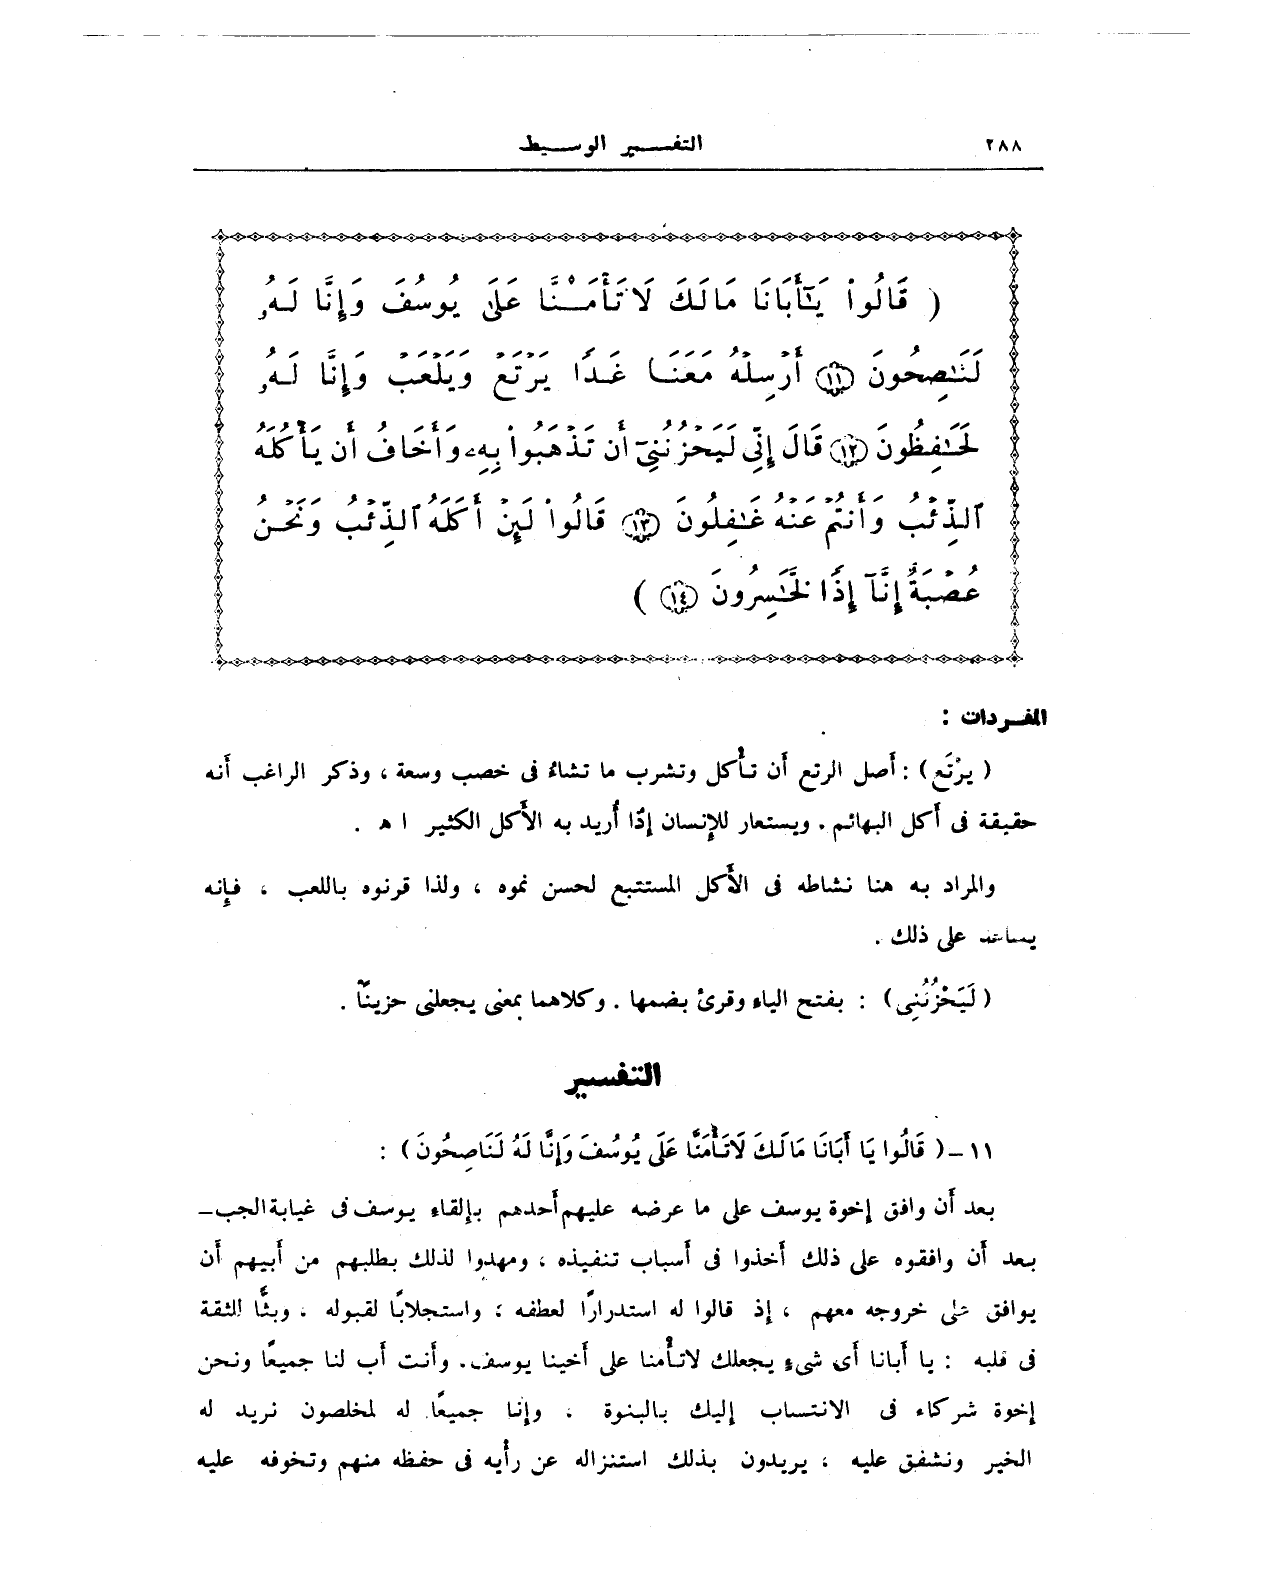 ٢٨٨
التفسير الوسيط
( قَالُوا۟ يَٰٓأَبَانَا مَا لَكَ لَا تَأْمَ۫نَّا عَلَىٰ يُوسُفَ وَإِنَّا لَهُۥ
لَنَٰصِحُونَ ﴿١١﴾ أَرْسِلْهُ مَعَنَا غَدًا يَرْتَعْ وَيَلْعَبْ وَإِنَّا لَهُۥ
لَحَٰفِظُونَ ﴿١٢﴾ قَالَ إِنِّى لَيَحْزُنُنِىٓ أَن تَذْهَبُوا۟ بِهِۦ وَأَخَافُ أَن يَأْكُلَهُ
ٱلذِّئْبُ وَأَنتُمْ عَنْهُ غَٰفِلُونَ ﴿١٣﴾ قَالُوا۟ لَئِنْ أَكَلَهُ ٱلذِّئْبُ وَنَحْنُ
عُصْبَةٌ إِنَّآ إِذًا لَّخَٰسِرُونَ ﴿١٤﴾ )
المفردات :
( يرْتَع ) : أصل الرتع أن تأكل وتشرب ما تشاءُ فى خصب وسعة ، وذكر الراغب أنه
حقيقة فى أكل البهائم . ويستعار للإنسان إذًا أُريد به الأكل الكثير ا ھ .
والمراد به هنا نشاطه فى الأكل المستتبع لحسن نموه ، ولذا قرنوه باللعب ، فإنه
يساعد على ذلك .
( لَيَحْزُنُنِى ) : بفتح الياء وقرئ بضمها . وكلاهما بمعنى يجعلنى حزينًا .
التفسير
١١ - ( قَالُوا يَا أَبَانَا مَا لَكَ لَا تَأْمَنَّا عَلَى يُوسُفَ وَإِنَّا لَهُ لَنَاصِحُونَ ) :
بعد أن وافق إخوة يوسف على ما عرضه عليهم أحدهم بإلقاء يوسف فى غيابة الجب ـ
بعد أن وافقوه على ذلك أخذوا فى أسباب تنفيذه ، ومهدوا لذلك بطلبهم من أبيهم أن
يوافق على خروجه معهم ، إذ قالوا له استدرارًا لعطفه ؛ واستجلابًا لقبوله ، وبثًّا للثقة
فى قلبه : يا أبانا أى شىءٍ يجعلك لاتأْمنا على أخينا يوسف . وأنت أب لنا جميعًا ونحن
إخوة شركاء فى الانتساب إليك بالبنوة ، وإنا جميعًا له لمخلصون نريد له
الخير ونشفق عليه ، يريدون بذلك استنزاله عن رأْيه فى حفظه منهم وتخوفه عليه